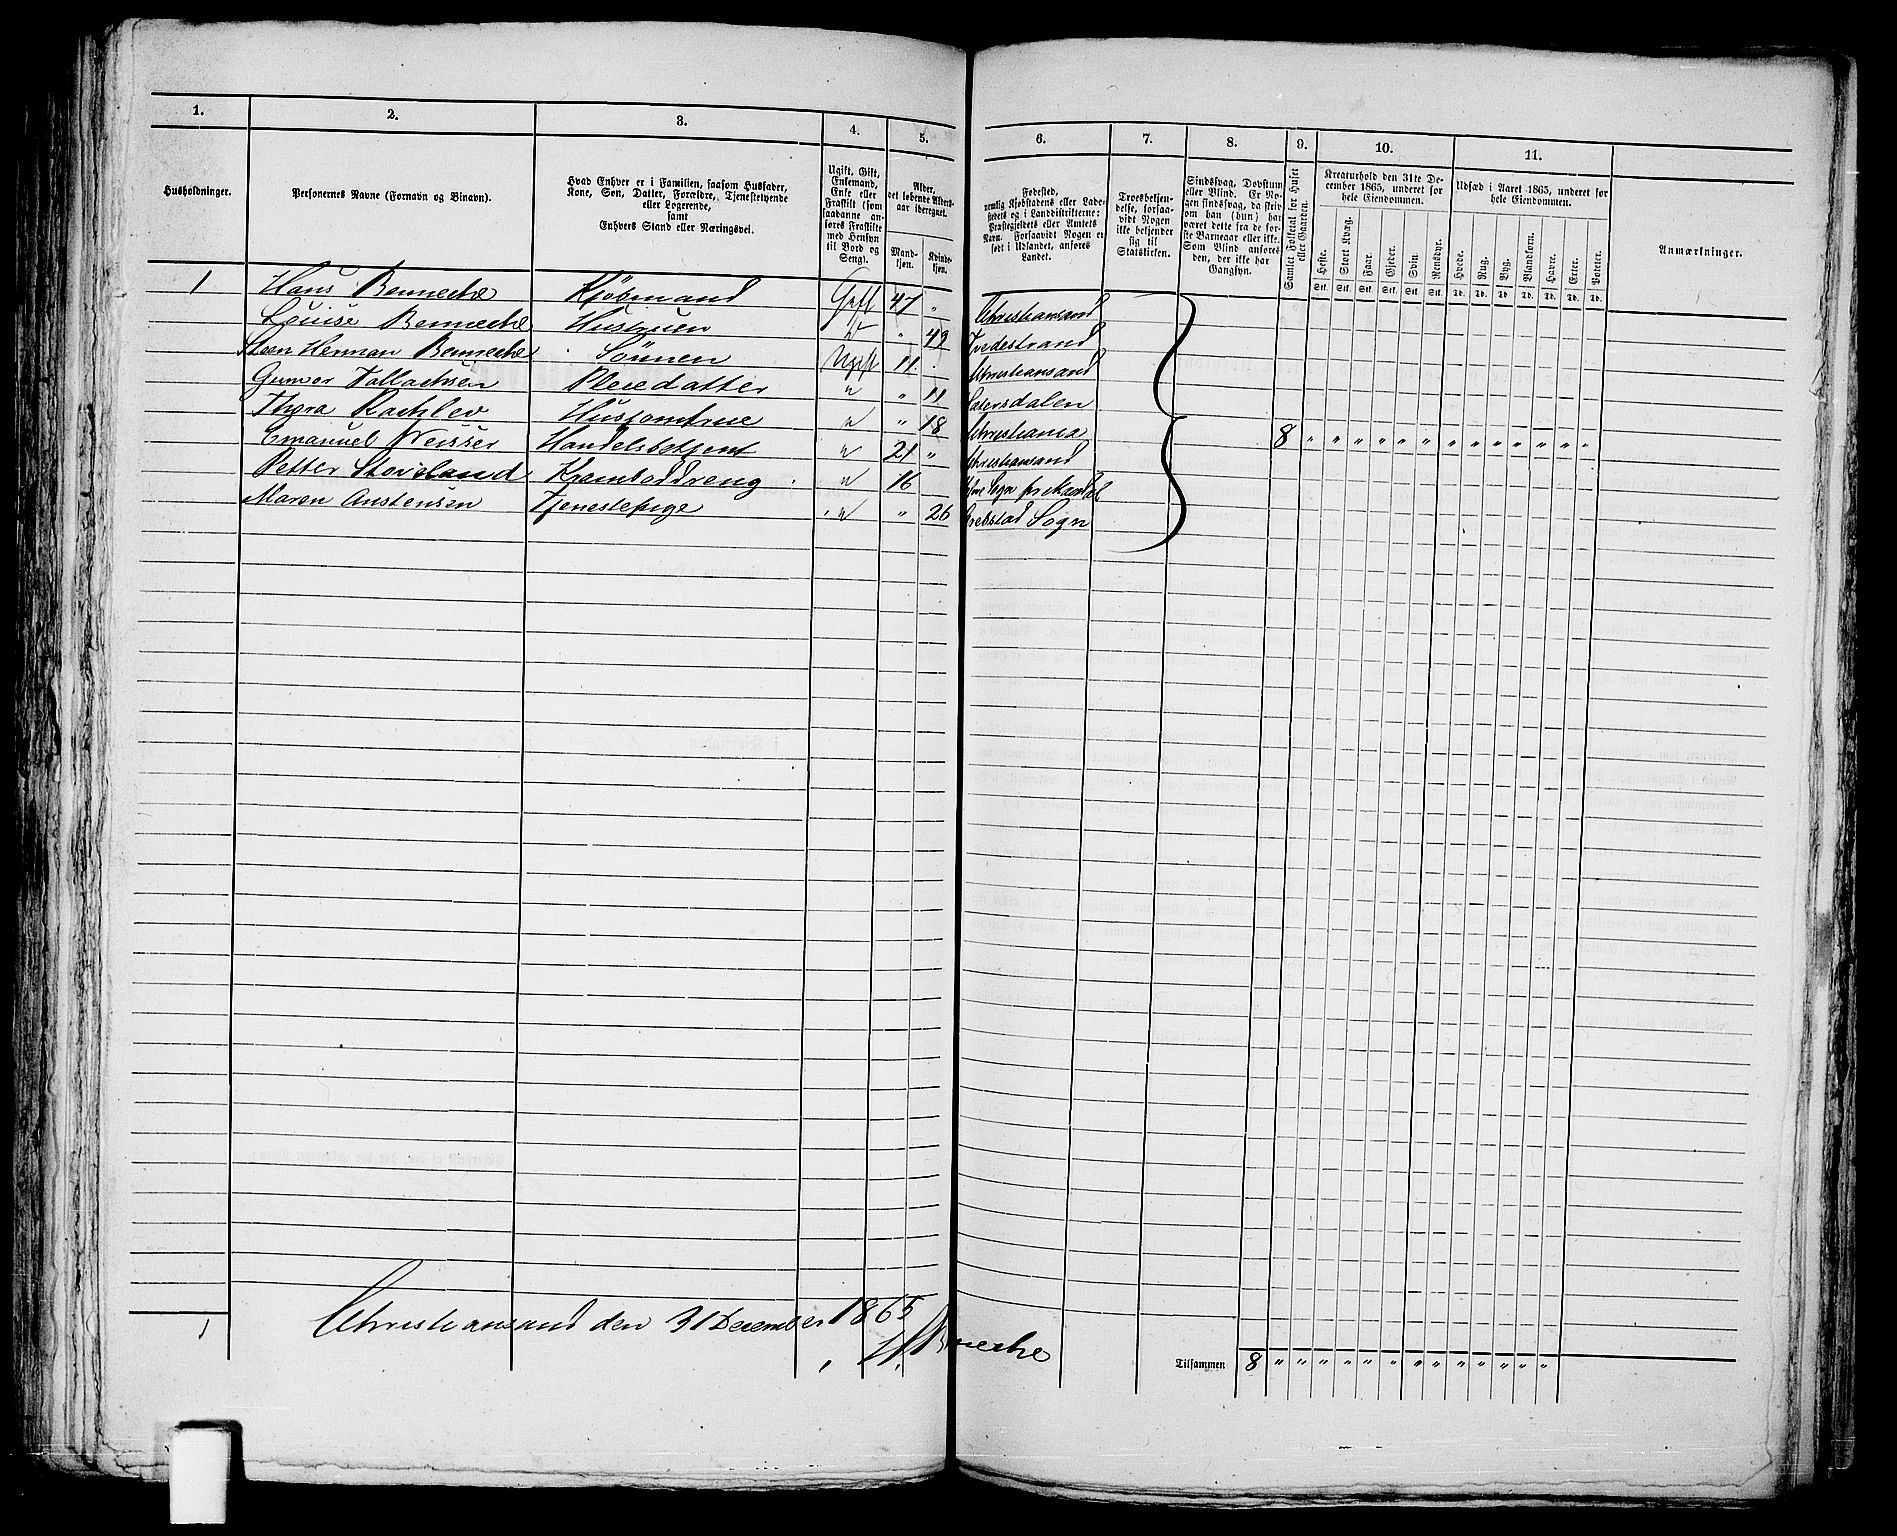 1. 2. 3. 4. 5. 6. 7. 8. 9. 10. 11.
Husholdninger.
Personernes Navne (Fornavn og Binavn).
Hvad Enhver er i Familien, saasom Husfader,
Kone, Søn, Datter, Forældre, Tjenestetyende
eller Logerende,
samt
Enhvers Stand eller Næringsvei.
Ugift, Gift,
Enkemand,
Enke eller
Fraskilt (som
saadanne an-
føres Fraskilte
med Hensyn
til Bord og
Seng).
Alder,
det løbende Alders-
aar iberegnet.
Mand-
kjøn.
Kvinde-
kjøn.
Fødested,
nemlig Kjøbstadens eller Lade-
stedets og i Landdistrikterne:
Præstegjeldets eller Amtets
Navn. Forsaavidt Nogen er
født i Udlandet, anføres
Landet.
Troesbekjen-
delse, forsaa-
vidt Nogen
ikke bekjender
sig til
Statskirken.
Sindssvag, Døvstum
eller Blind. Er No-
gen sindssvag, da skriv
om han (hun) har
været dette fra de før-
ste Barneaar eller ikke.
Som Blind anføres
den, der ikke har
Gangsyn.
Samlet Folketal for Huset
eller Gaarden.
Kreaturhold den 31te De-
cember 1865, underet for
hele Eiendommen.
Heste. Stort Kvæg. Faar. Gjeder. Svin. Rensdyr.
Stk. Stk. Stk. Stk. Stk. Stk.
Udsæd i Aaret 1865, underet for
hele Eiendommen.
Hvede. Rug. Byg. Blandkorn. Havre. Erter. Poteter.
Td. Td. Td. Td. Td. Td. Td.
Anmærkninger.
1 Hans Benneche Kjøbmand Gift 47 " Christiansand
Louise Benneche Hustruen " 49 Tvedestrand
Steen Herman Benneche Sønnen Ugift 11 Christiansand
Gunvor Pleiedatter " " 11 Sætersdalen
Thyra Husjomfrue " " 18 Christiania 8 " " " " " " " " " " " " "
Emanuel Weisser Handelsbetjent " 21 " Christiansand
Petter Stoveland Kramboddreng " 16 Sogn
Maren Anstensen Tjenestepige " " 26 Sogn
1 Christiansand den 31 December 1865
H. Benneche
Tilsammen 8 " " " " " " " " " " " " "